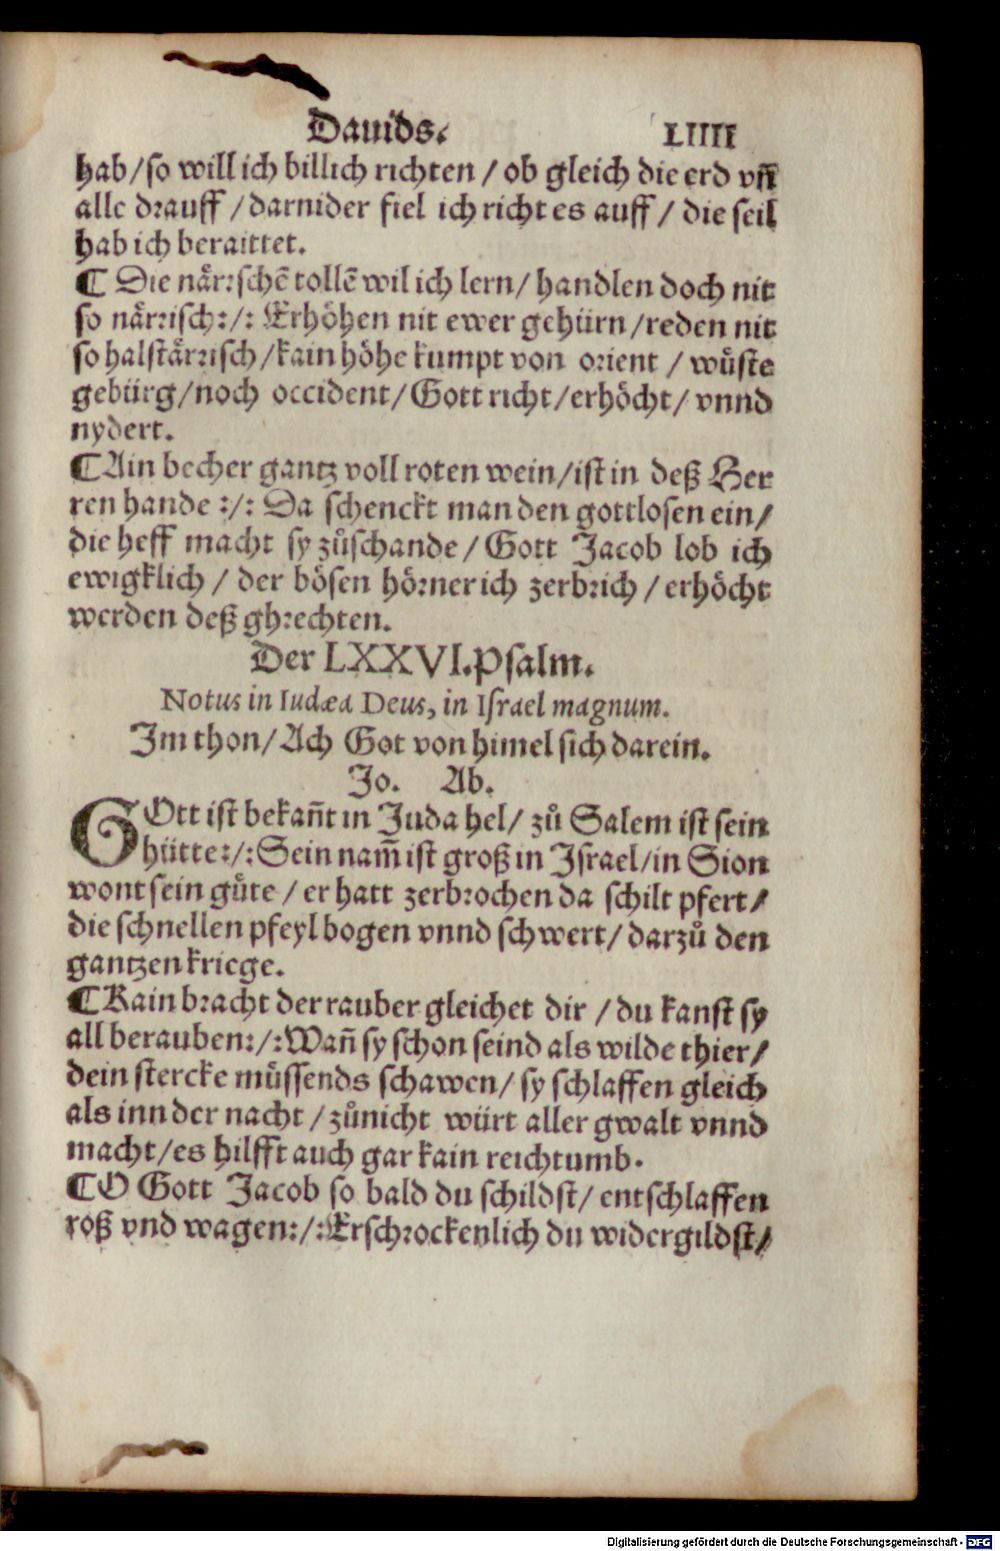 Dauids. LIIII
hab/so will ich billich richten / ob gleich die erd vñ
alle drauff /darnider fiel ich richt es auff / die seil
hab ich beraittet.
¶ Die nårrschē tollē wil ich lern/ handlen doch nit
so nårrisch:/: Erhöhen nit ewer gehürn /reden nit
so halstårrisch /kain höhe kumpt von orient / wůste
gebürg/noch occident/ Gott richt/erhöcht/ vnnd
nydert.
¶Ain becher gantz voll roten wein/ist in deß Her
ren hande :/: Da schenckt man den gottlosen ein/
die heff macht sy zůschande / Gott Jacob lob ich
ewigklich / der bösen hörner ich zerbrich / erhöcht
werden deß ghrechten.
Der LXXVI. Psalm.
Notus in Iudæa Deus, in Israel magnum.
Im thon/ Ach Got von himel sich darein.
Jo. Ab.
GOtt ist bekañt in Juda hel/ zů Salem ist sein
hütte:/: Sein nam̃ ist groß in Israel/in Sion
wont sein gůte / er hatt zerbrochen da schilt pfert/
die schnellen pfeyl bogen vnnd schwert/ darzů den
gantzen kriege.
¶Kain bracht der rauber gleichet dir / du kanst sy
all berauben:/: Wañ sy schon seind als wilde thier/
dein stercke můssends schawen/ sy schlaffen gleich
als inn der nacht / zůnicht würt aller gwalt vnnd
macht/es hilfft auch gar kain reichtumb.
¶O Gott Jacob so bald du schildst/ entschlaffen
roß vnd wagen:/: Erschrockenlich du widergildst/
Digitalisierung gefördert durch die Deutsche Forschungsgemeinschaft - DFG